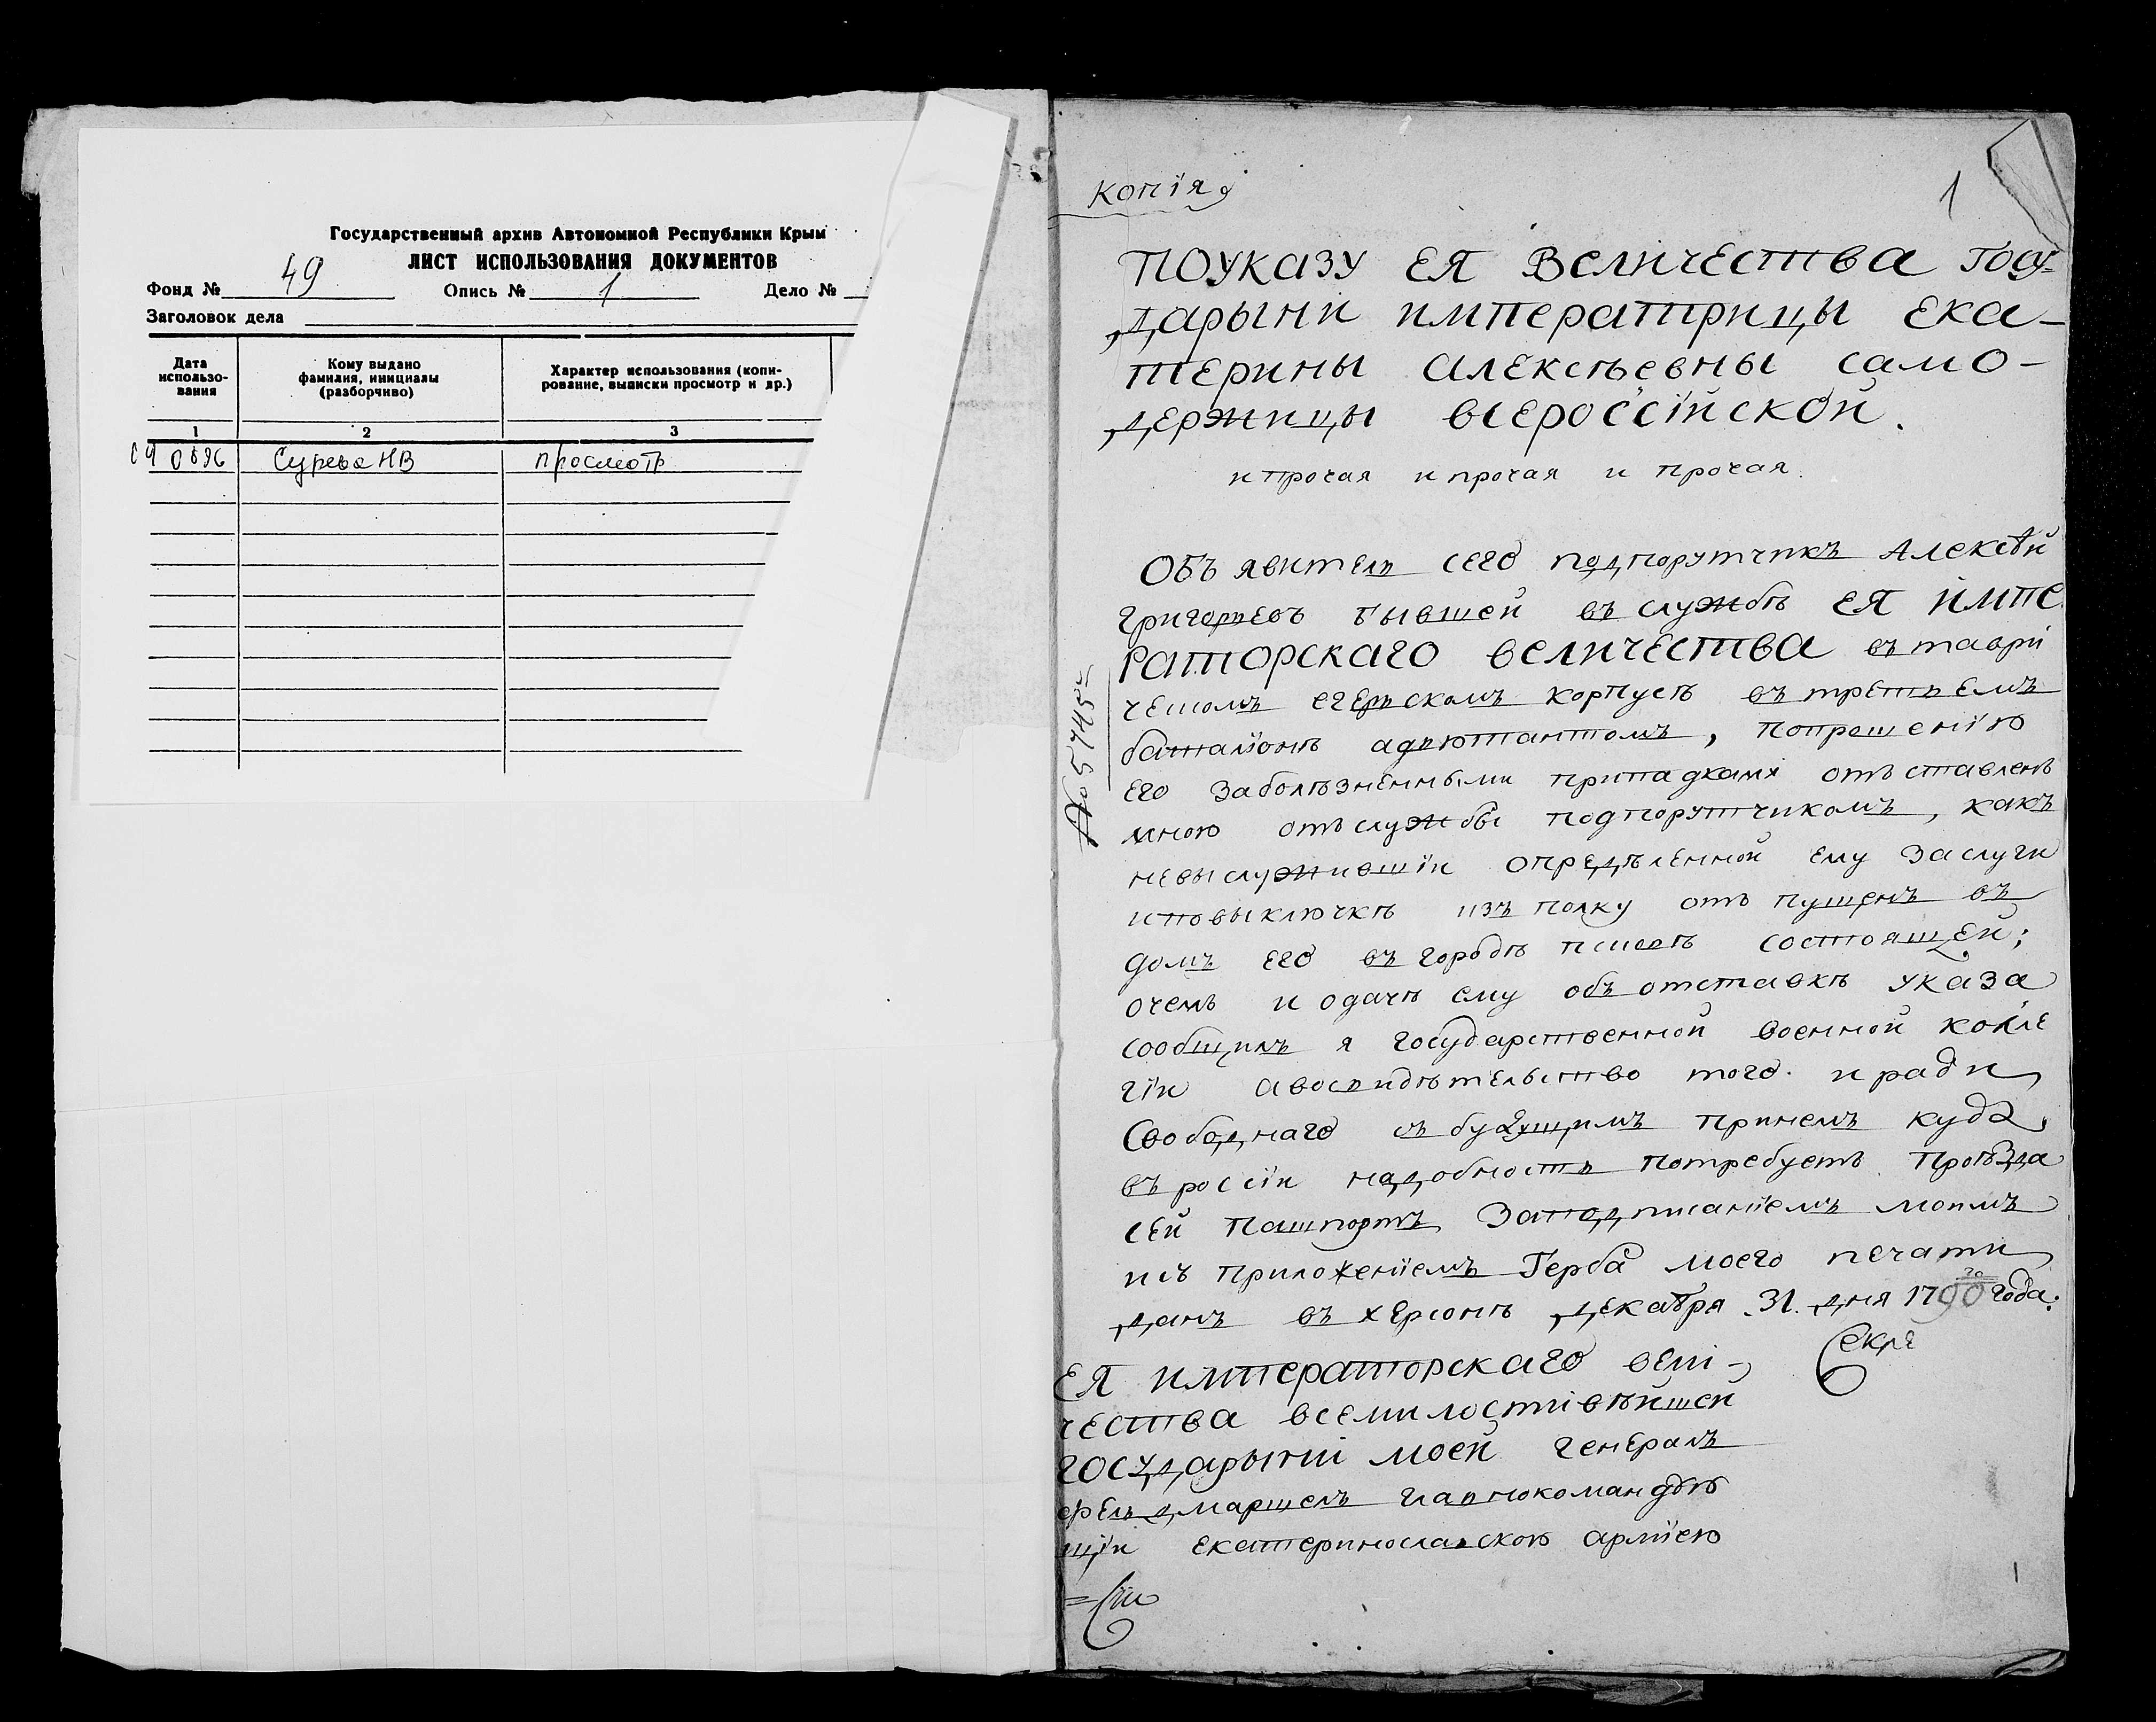 Государственный архив Автономной Республики Крым
ЛИСТ ИСПОЛЬЗОВАНИЯ ДОКУМЕНТОВ
Фонд № 49 Опись № 1 Дело №
Заголовок дела
Дата использо-вания
Кому выдано фамилия, инициалы (разборчиво)
Характер использования (копи-рование, выписки просмотр и др.)
1 2 3
просмотр
копїя
1
ПОУКАЗУ ЕЯ Величества Госу-
дарыни императрицы ека-
терины алексѣевны само-
держицы всероссїйской.
ипрочая ипрочая и прочая.
Объявитель сего подпорутчикъ Алексѣй
григорьевъ бывшей въ службѣ ЕЯ импе
раторскаго величества въ таври
ческомъ егерьскомъ корпусѣ въ третьемъ
баталїонѣ адьютантомъ, попрошенїю
его заболѣзненными припадками отъставленъ
мною отъслужбы подпорутчикомъ, какъ
невыслужившїи определенной ему заслуги
иповыключкѣ изъ полку отъпущенъ въ
домъ его въ городѣ состоящей;
очемъ и одачѣ ему объ отставкѣ указа
сообщилъ я государственной военной колле
гїи авосвидѣтельство того. иради
Свободнаго съ будущимъ принемъ куда
въ россїи надобность потребуетъ проѣзда
сей пашпортъ Заподписанїемъ моимъ
исъ приложенїемъ Герба моего печати
данъ въ херсонѣ декабря 31. дня 1790го года:
ЕЯ императорскаго вели-
чества всемилостивѣйшей
государыни моей генералъ
фельдмаршелъ главнокоманд
щїи екатеринославскою армїею